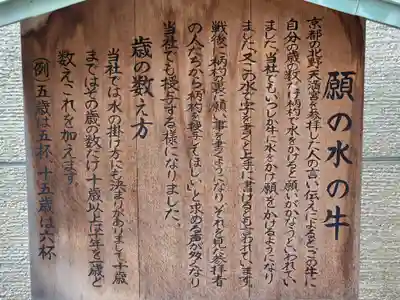 願の水の牛
京都の北野天満宮を参拝した人の言い伝えによるとこの牛に
自分の歳の数だけ柄杓で水をかけると願いがかなうといわれてい
ました。当社でもいつしか牛に水をかけ願いをかけるようになり
ました。又この水で字を書くと上手に書けるとも言われています。
戦後に柄杓の裏に願い事を書くようになり、それを見た参拝者
の人たちから柄杓を授与してほしいと求める声が多くなり
当社でも授与する様になりました。
歳の数え方
当社では水の掛け方にも決まりがありまして、十歳
まではその歳の数だけ、十歳以上は十年を一歳と
数えこれを加えます
例 五歳は五杯、十五歳は六杯